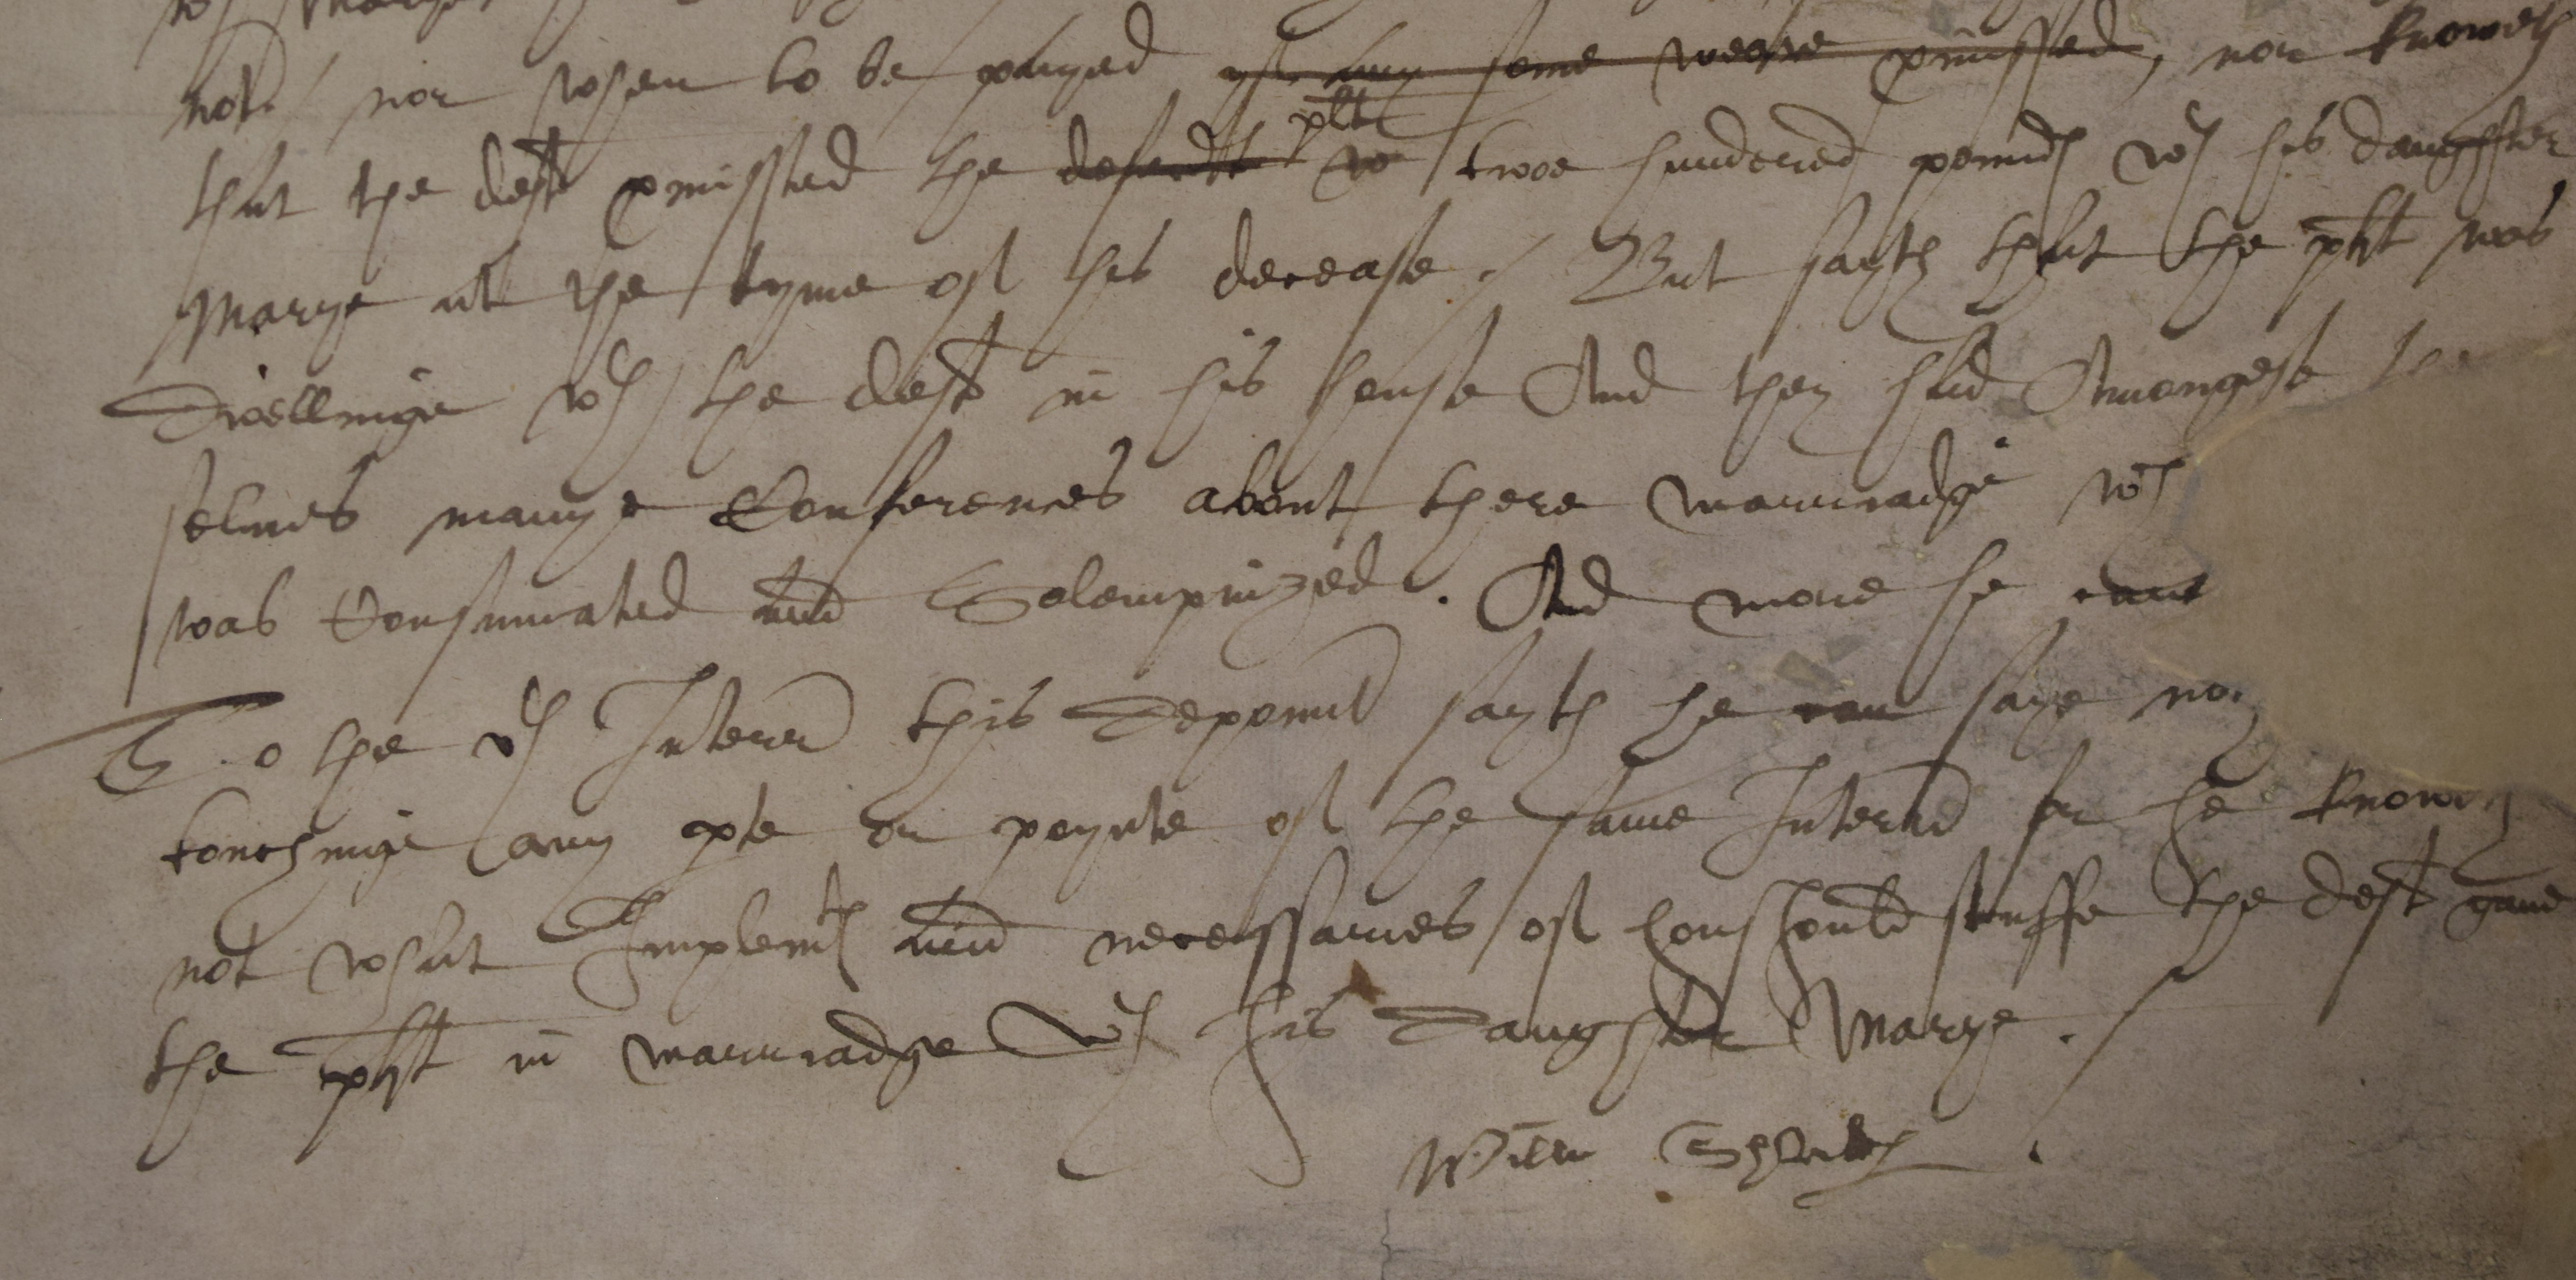 wth Marye
not / nor when to be payed yf any some weare pmissed, nor knoweth
that the deft pmissed the defendt plt to twoe hundered pounds wth his daughter
Marye at the tyme of his decease / But sayth that the plt was
Dwellinge wth the deft in his house And they had Amongest the
selues manye Conferences about there marriadge wch
was Consumated and Solempnized . And more he cant
To the vth Interr this Deponnt sayth he can saye no
touchinge any pte or poynte of the same Interr for he knoweth
not what Implemts and necessaries of houshould stuffe the deft gaue
the plt in marriadge wth his Daughter Marye .
Willm